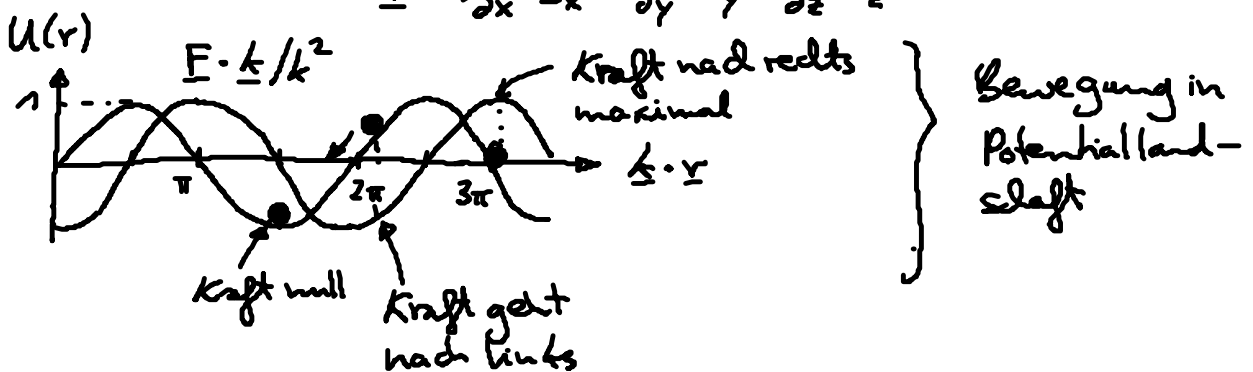 ∂x x ∂y y ∂z z
U(r)
F · k/k²
1
π
2π
3π
k · r
Kraft nach rechts
maximal
Kraft null
Kraft geht
nach links
Bewegung in
Potentialland-
schaft